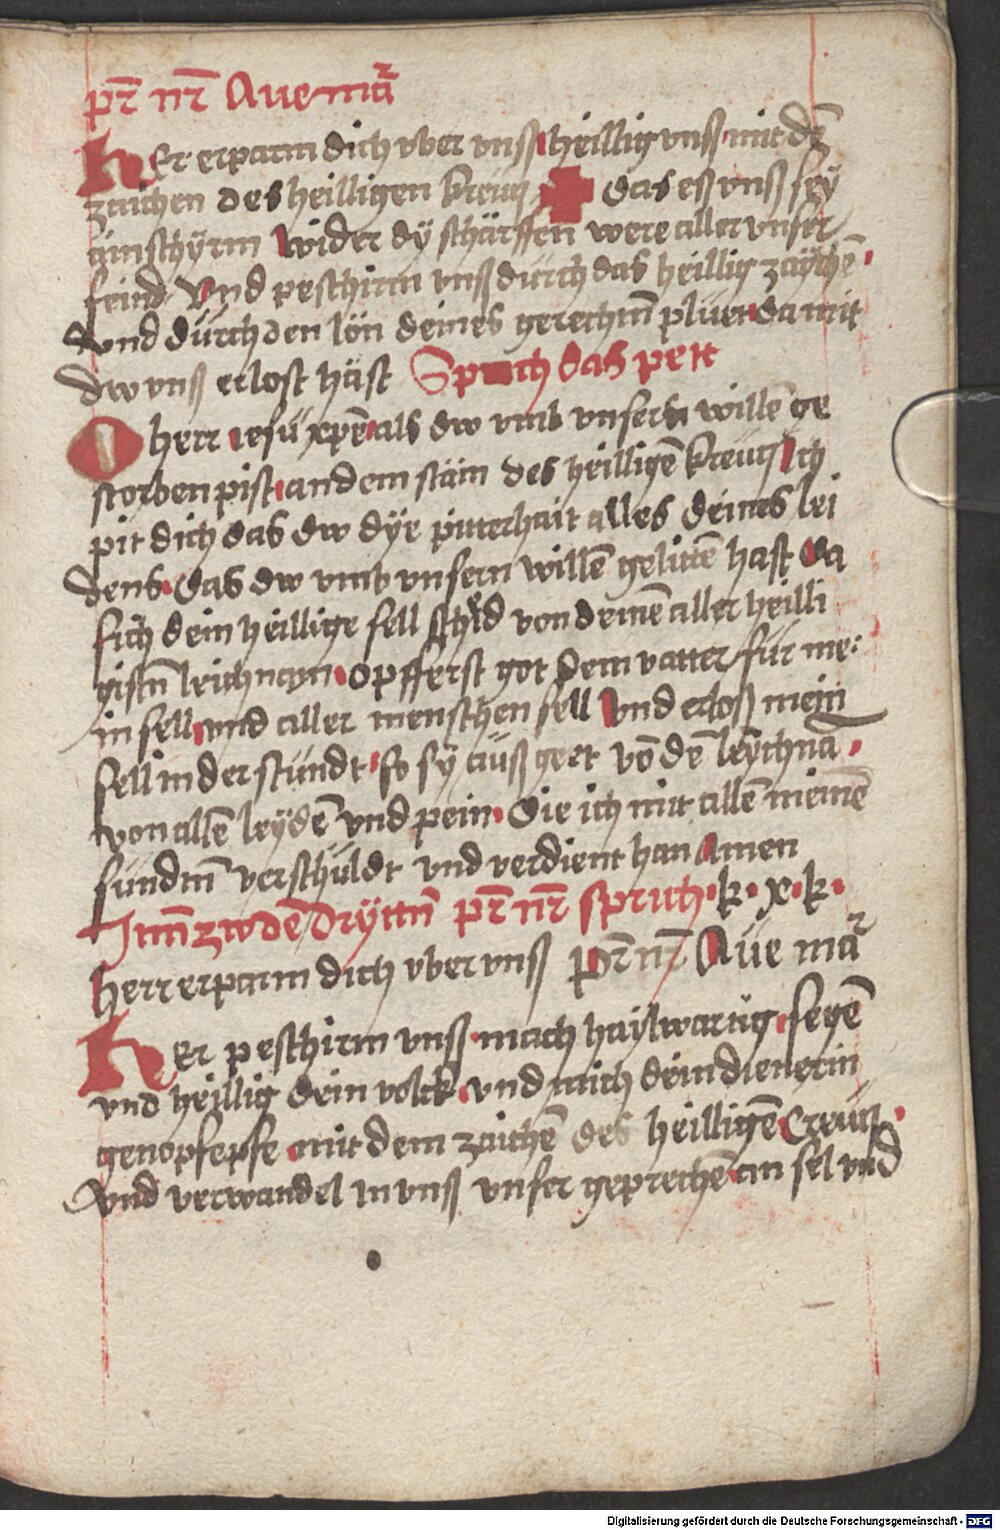 pr̄ nr̄ Aue mar̄
HEr erparm dich vber vnß heillig vnß mit dē
zaichen des heilligen kreucz ✚ das eß vnß sey
ain schÿrm wider dÿ schärffen were aller vnser
feind Vnd peschirm vnß durch das heillig zaÿchē
vnd durch den lön deines gerechtñ pluet da mit
dw vnß erlost häst Sprich das pett
O herr iesu xp̄e als dw vmb vnsern willē ge
storben pist an dem stäm des heilligē kreucz Ich
pit dich das dw dÿe pitterhait alles deines lei
dens das dw vmb vnsern willē gelittē hast da
sich dein heillige sell schid von deinē aller heilli
gistn̄ leichnam opfferst got dem vatter für me
in sell vnd aller menschen sell Vnd erloß mein
sell in der stundt so sÿ auß geet vō dē leÿchnā
von allē leÿdē vnd pein Die ich mit allē meinē
sundn̄ verschuldt vnd verdient han Amen
zw dē drÿttn̄ pr̄ nr̄ sprich k x k
herr erparm dich vber vnß pr̄ nr̄ Aue mar̄
HEr peschirm vnß mach haylwartig segē
vnd heillig dein volck vnd mich dein dienerin
mit dem zaichē des heilligē Creucz
vnd verwandel in vnß vnser geprechē an sel vnd
Digitalisierung gefördert durch die Deutsche Forschungsgemeinschaft - DFG